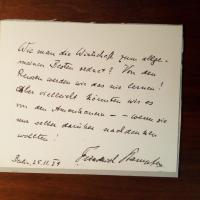 Wie man die Wirtschaft zum allge-
meinen Besten ordnet? Von den
Russen werden wir das nie lernen!
Aber vielleicht könnten wir es
von den Amerikanern -- wenn sie
nur selber darüber nachdenken
wollten!
Berlin, 25.11.59 Friedrich